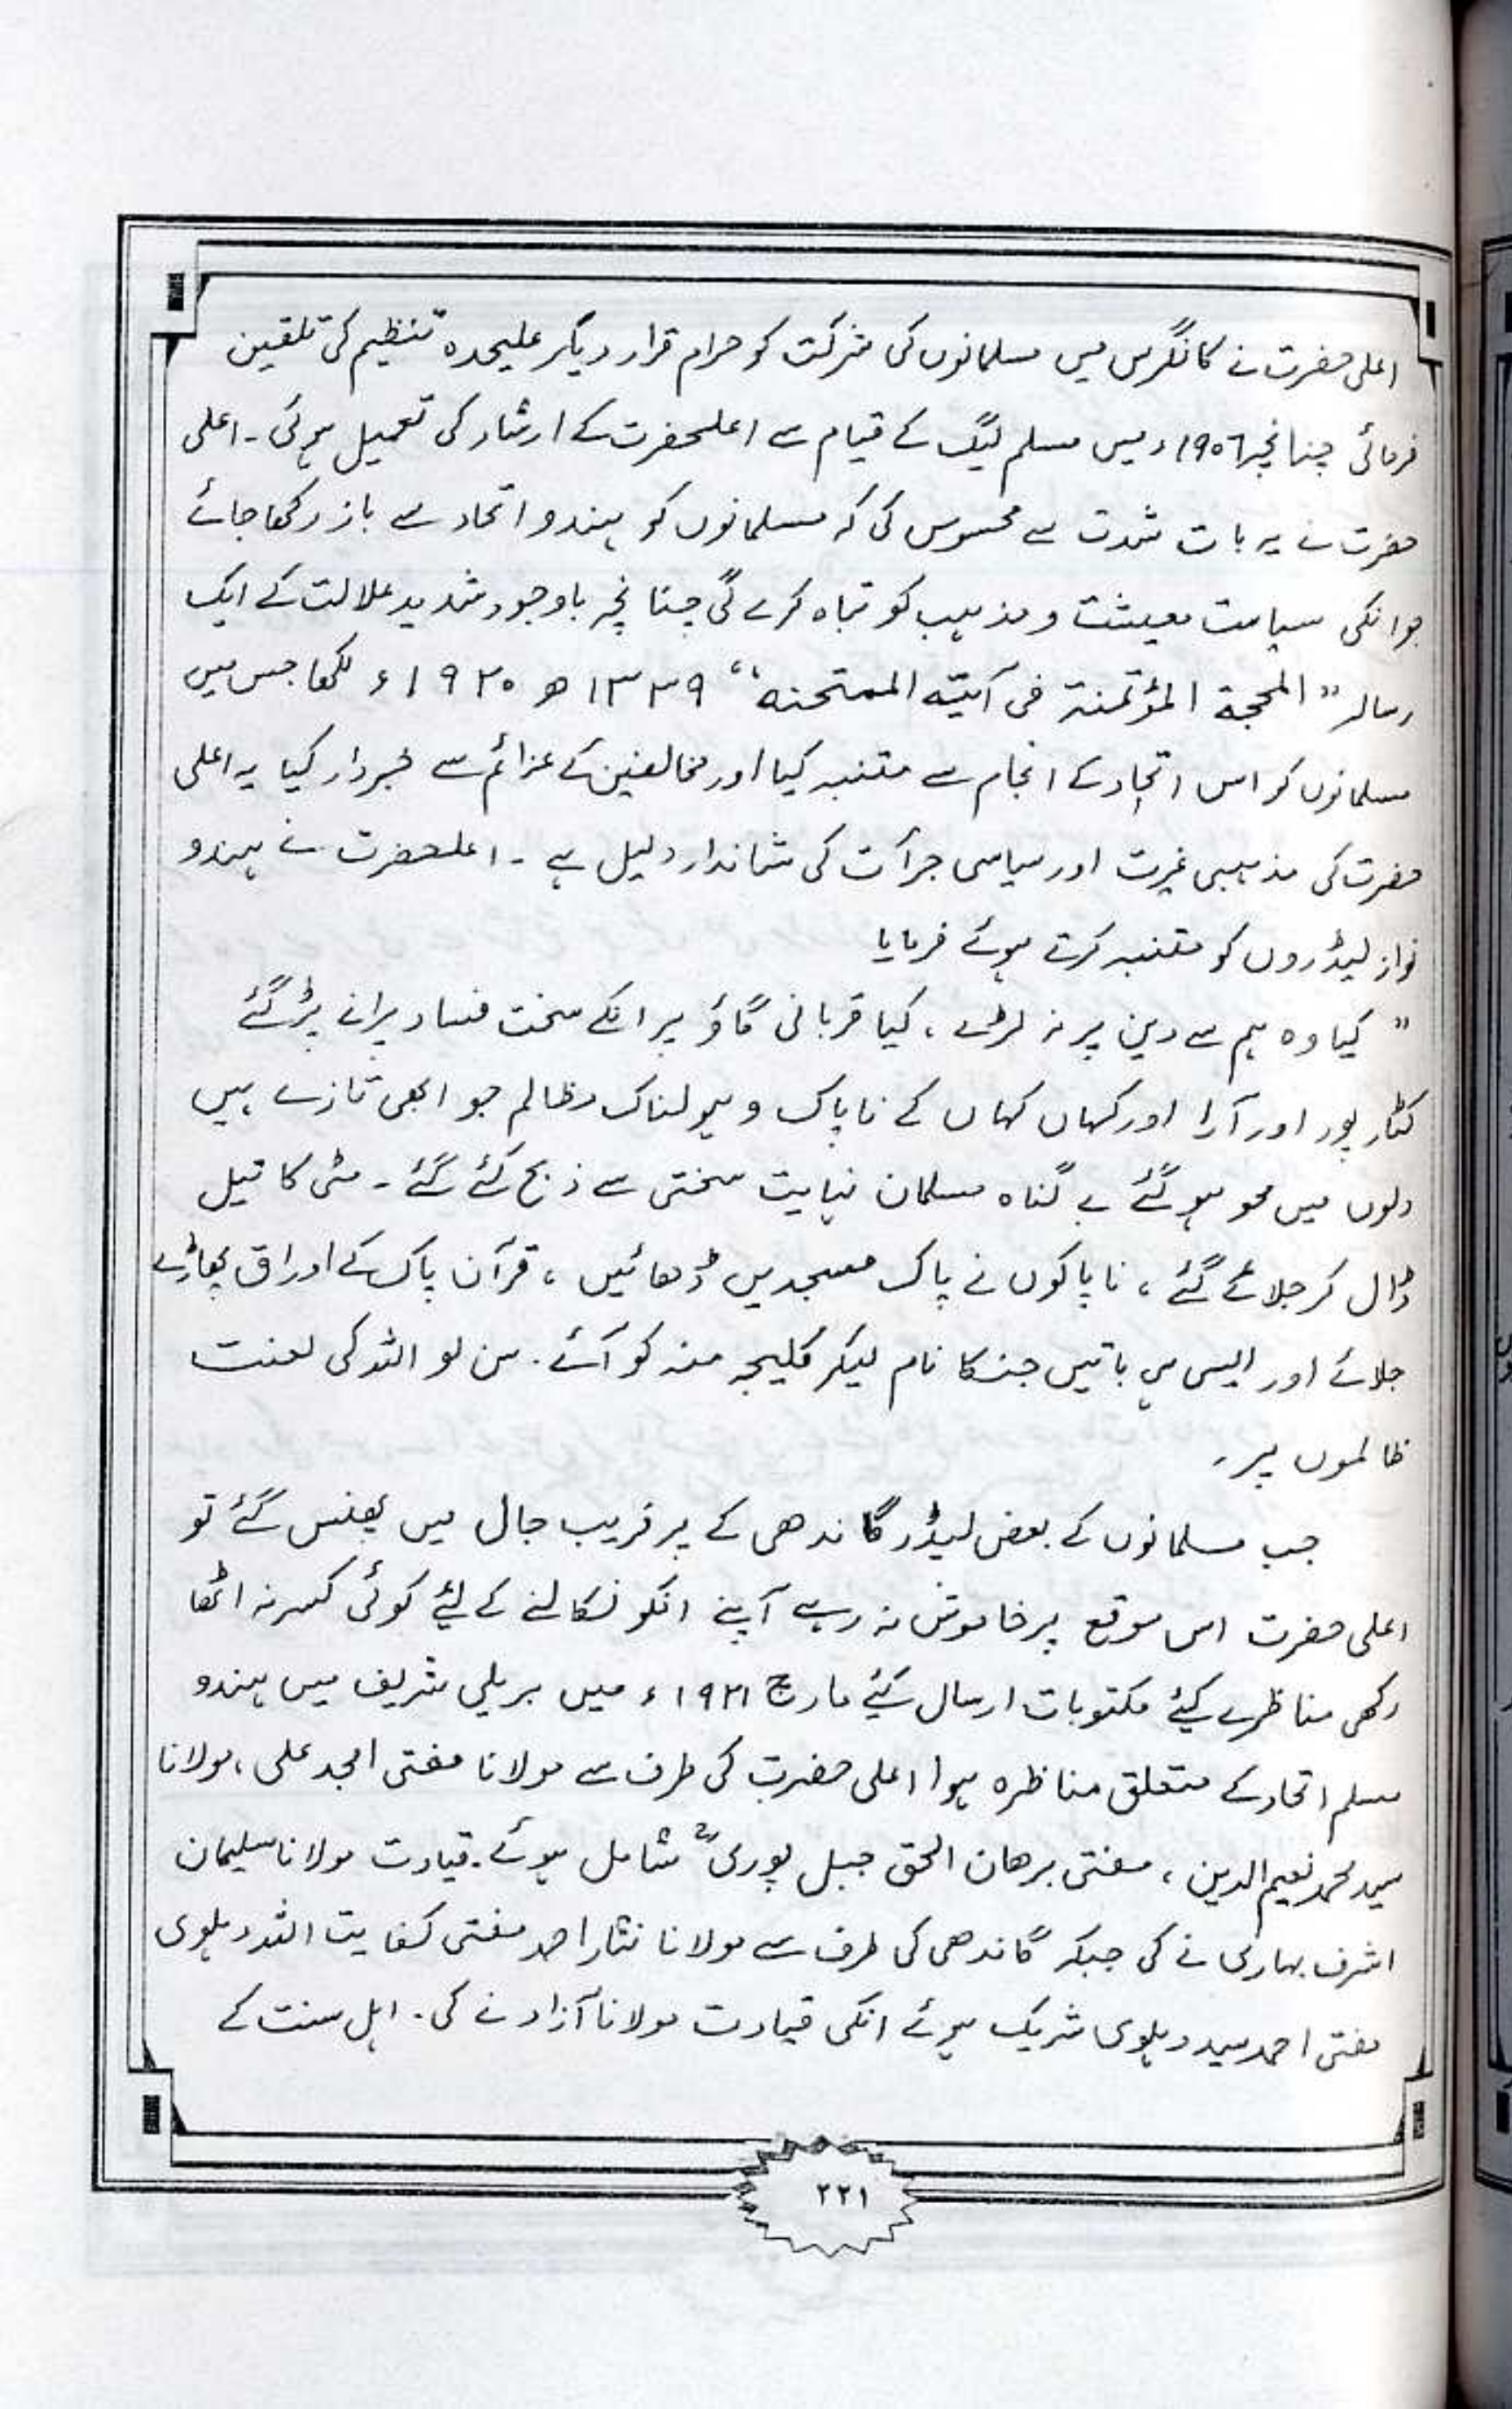 اعلی حضرت نے کانگرس میں مسلمانوں کی شرکت کو حرام قرار دیکر علیحدہ تنظیم کی تلقین
فرمائی چنانچہ ۱۹۰٦ء میں مسلم لیگ کے قیام سے اعلحضرت کے ارشاد کی تعمیل ہوئی ۔ اعلی
حضرت نے یہ بات شدت سے محسوس کی کہ مسلمانوں کو ہندو اتحاد سے باز رکھا جائے
جو انکی سیاست معیشت و مذہب کو تباہ کرے گی چنانچہ باوجود شدید علالت کے ایک
رسالہ " المحجۃ المؤتمنۃ فی آیتہ الممتحنہ " ۱۳۳۹ ھ ۱۹۲۰ء لکھا جس میں
مسلمانوں کو اس اتحاد کے انجام سے متنبہ کیا اور مخالفین کے عزائم سے خبردار کیا یہ اعلی
حضرت کی مذہبی غیرت اور سیاسی جرآت کی شاندار دلیل ہے ۔ اعلحضرت نے ہندو
نواز لیڈروں کو متنبہ کرتے ہوئے فرمایا
" کیا وہ ہم سے دین پر نہ لڑے ، کیا قربانی گاؤ پر انکے سخت فساد پرانے پڑ گئے
کٹار پور اور آرا اور کہاں کہاں کے ناپاک و ہولناک مظالم جو ابھی تازے ہیں
دلوں میں محو ہو گئے بے گناہ مسلمان نہایت سختی سے ذبح کئے گئے ۔ مٹی کا تیل
ڈال کر جلائے گئے ، ناپاکوں نے پاک مسجدیں ڈھائیں ، قرآن پاک کے اوراق پھاڑے
جلائے اور ایسی ہی باتیں جنکا نام لیکر کلیجہ منہ کو آئے . سن لو اللہ کی لعنت
ظالموں پر ۔
جب مسلمانوں کے بعض لیڈر گاندھی کے پر فریب جال میں پھنس گئے تو
اعلی حضرت اس موقع پر خاموش نہ رہے آپنے انکو نکالنے کے لئے کوئی کسر نہ اٹھا
رکھی مناظرے کیئے مکتوبات ارسال کیئے مارچ ۱۹۲۱ء میں بریلی شریف میں ہندو
مسلم اتحاد کے متعلق مناظرہ ہوا اعلی حضرت کی طرف سے مولانا مفتی امجد علی ، مولانا
سید محمد نعیم الدین ، مفتی برھان الحق جبل پوری ؒ شامل ہوئے . قیادت مولانا سلیمان
اشرف بہاری نے کی جبکہ گاندھی کی طرف سے مولانا نثار احمد مفتی کفایت اللہ دہلوی
مفتی احمد سید دہلوی شریک ہوئے انکی قیادت مولانا آزاد نے کی . اہل سنت کے
۲۲۱